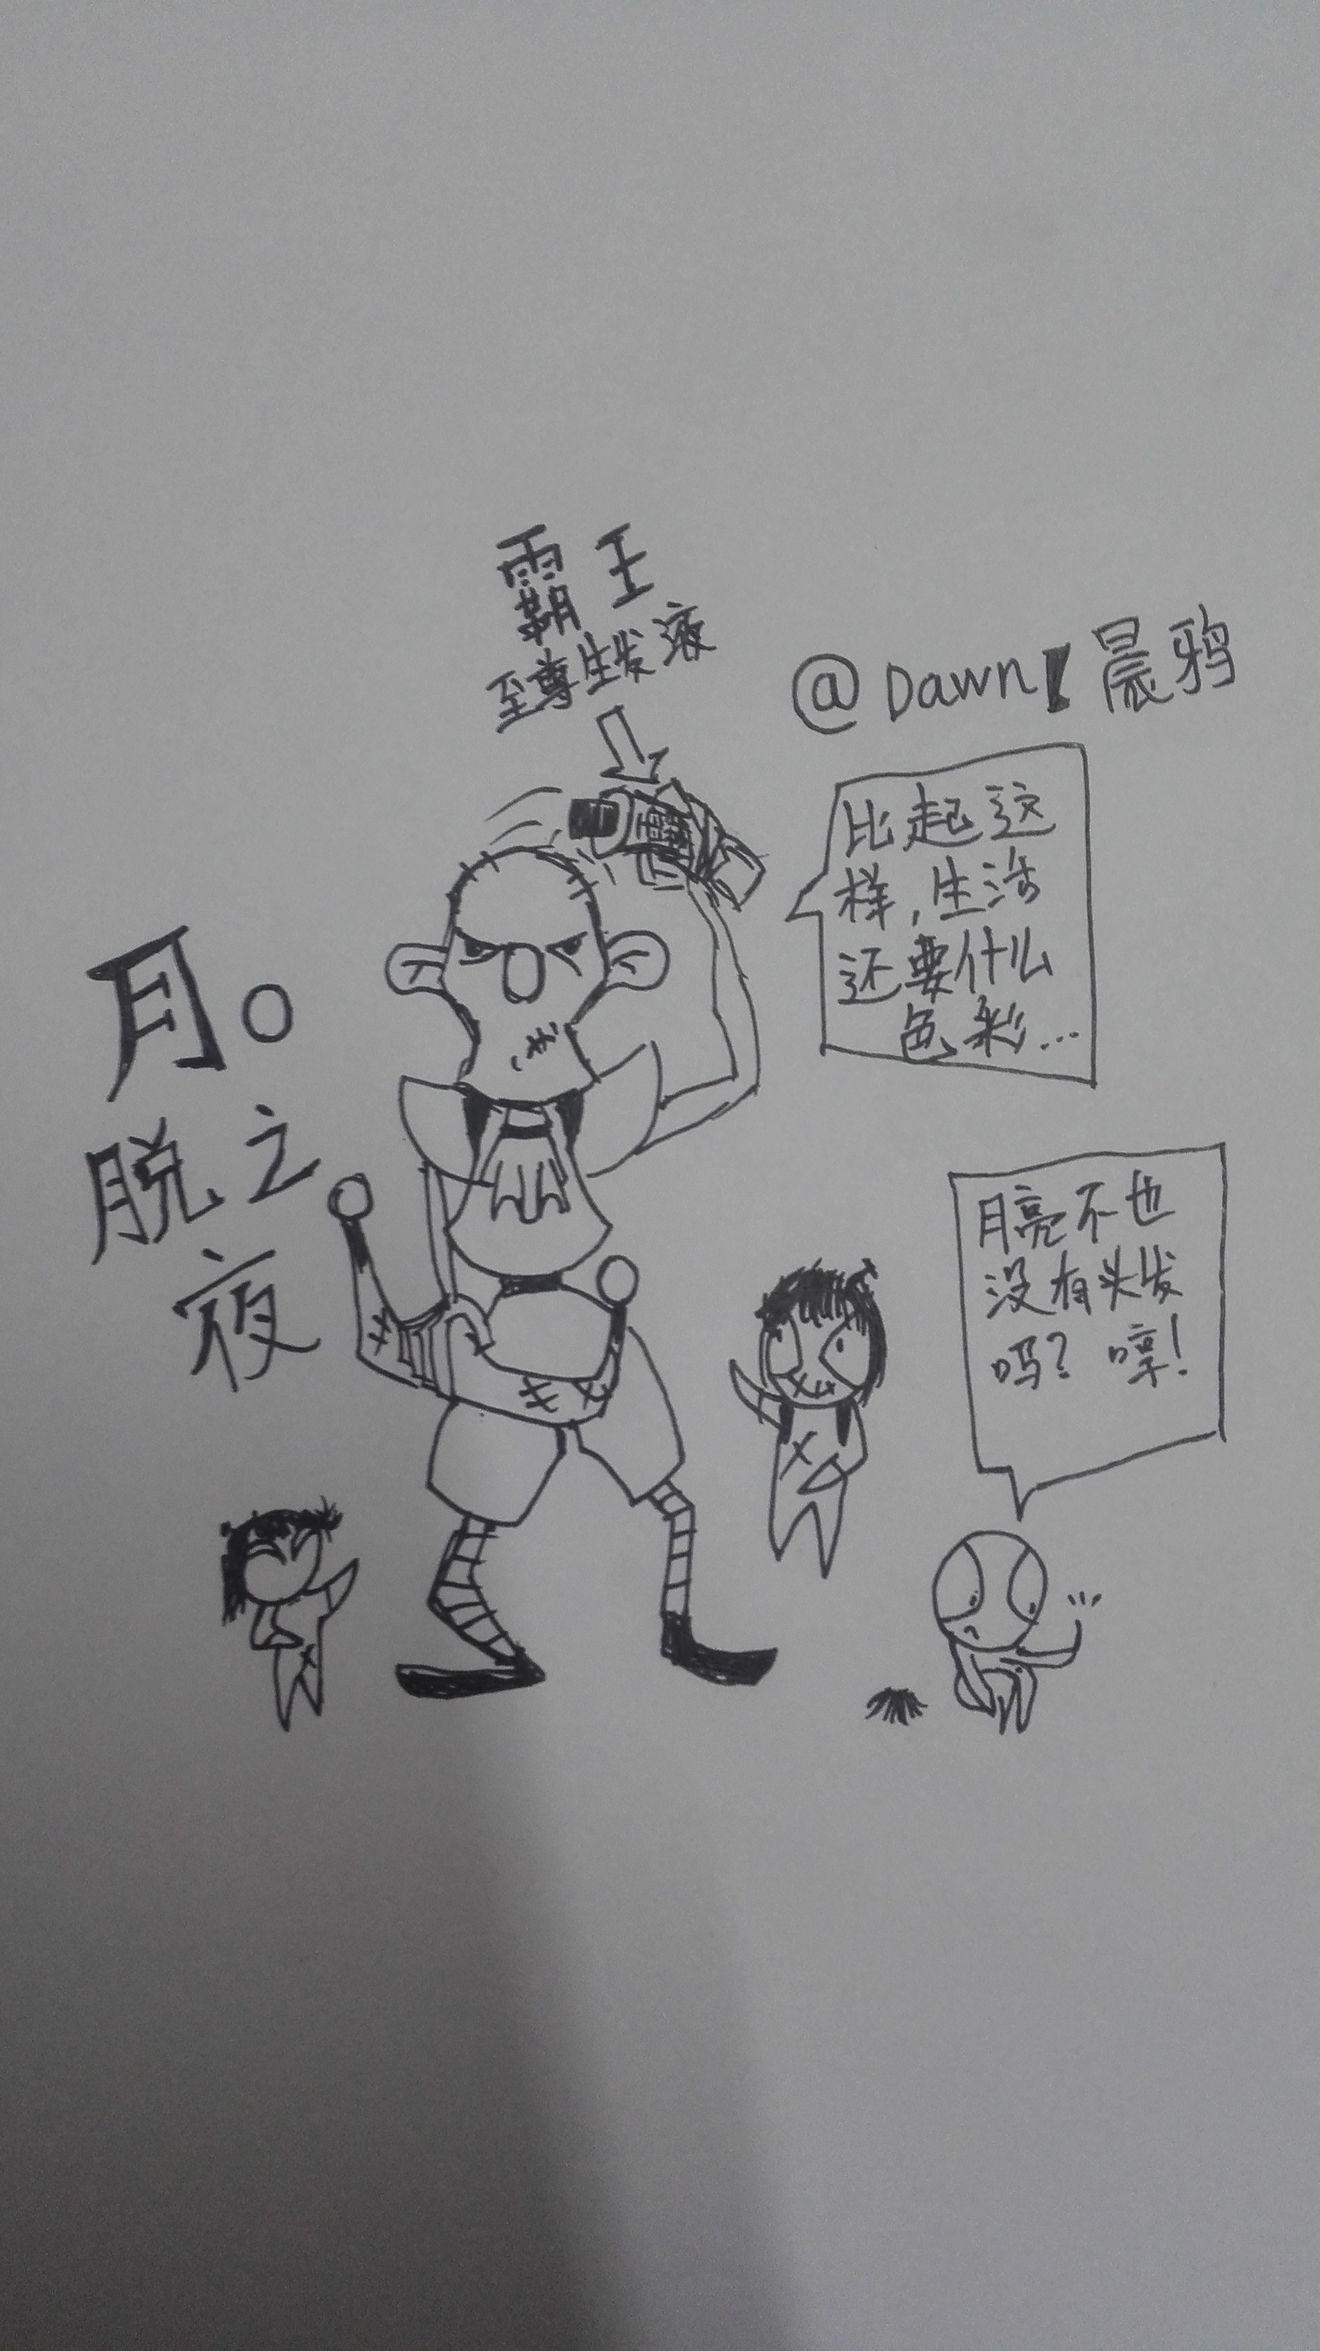 霸王
至尊生发液
@Dawn 晨鸦
比起这
样，生活
还要什么
色彩...
月。
脱之
夜
月亮不也
没有头发
吗？哼！